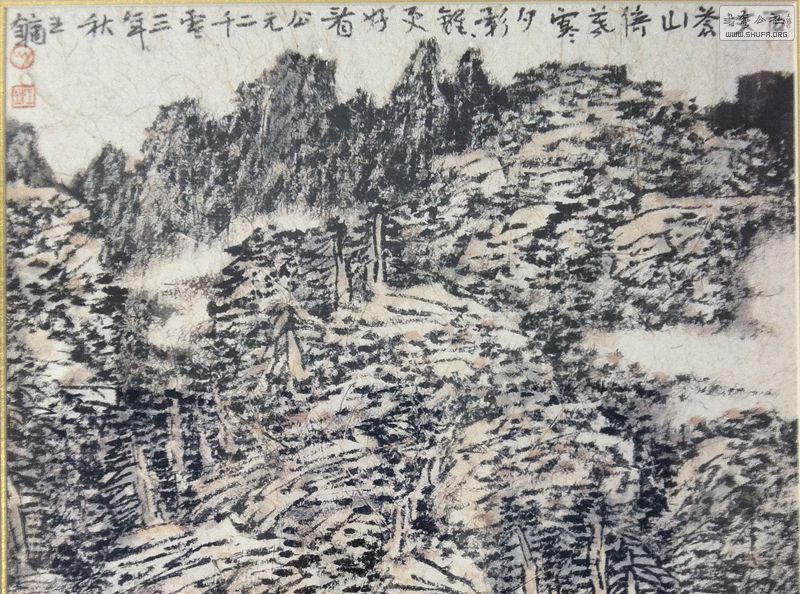 蒼山倚寒夕影更好看公元二千零三年秋王鏞
WWW.SHUFA.ORG